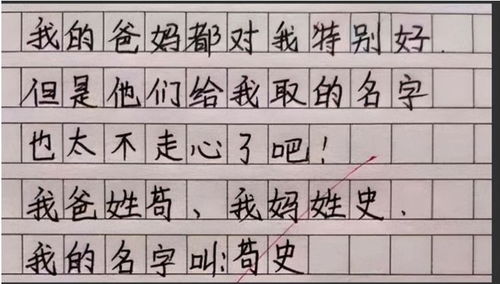 我的爸妈都对我特别好.
但是他们给我取的名字
也太不走心了吧!
我爸姓苟、我妈姓史.
我的名字叫:苟史